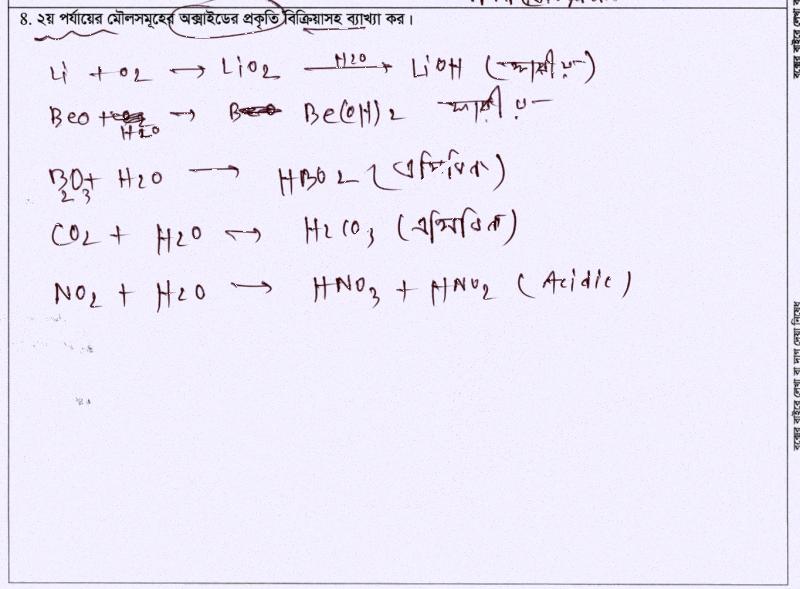 ৪. ২য় পর্যায়ের মৌলসমূহের অক্সাইডের প্রকৃতি বিক্রিয়াসহ ব্যাখ্যা কর।
Li + O2 → LiO2 H2O → LiOH (ক্ষারীয়)
BeO + H2O → Be(OH)2 ক্ষারীয়
B2O3 + H2O → HBO2 (এসিডিক)
CO2 + H2O ↔ H2CO3 (এসিডিক)
NO2 + H2O → HNO3 + HNO2 (Acidic)
বক্সের বাইরে লেখা বা দাগ দেয়া নিষেধ